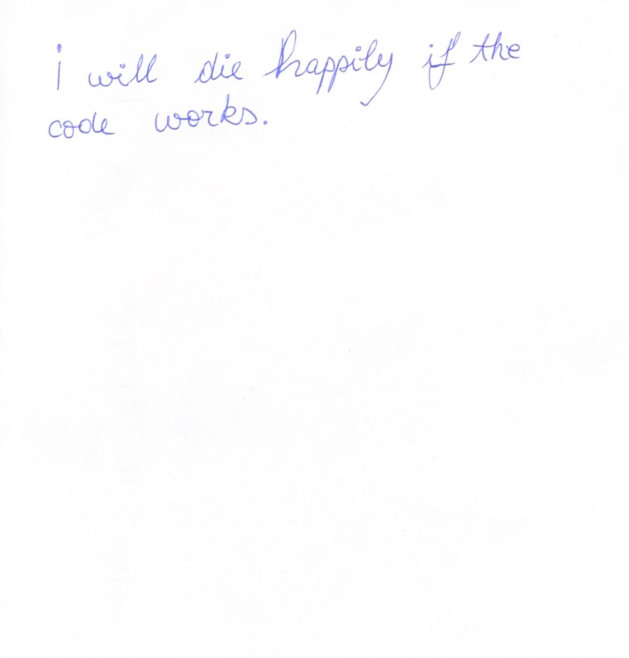 i will die happily if the
code works.